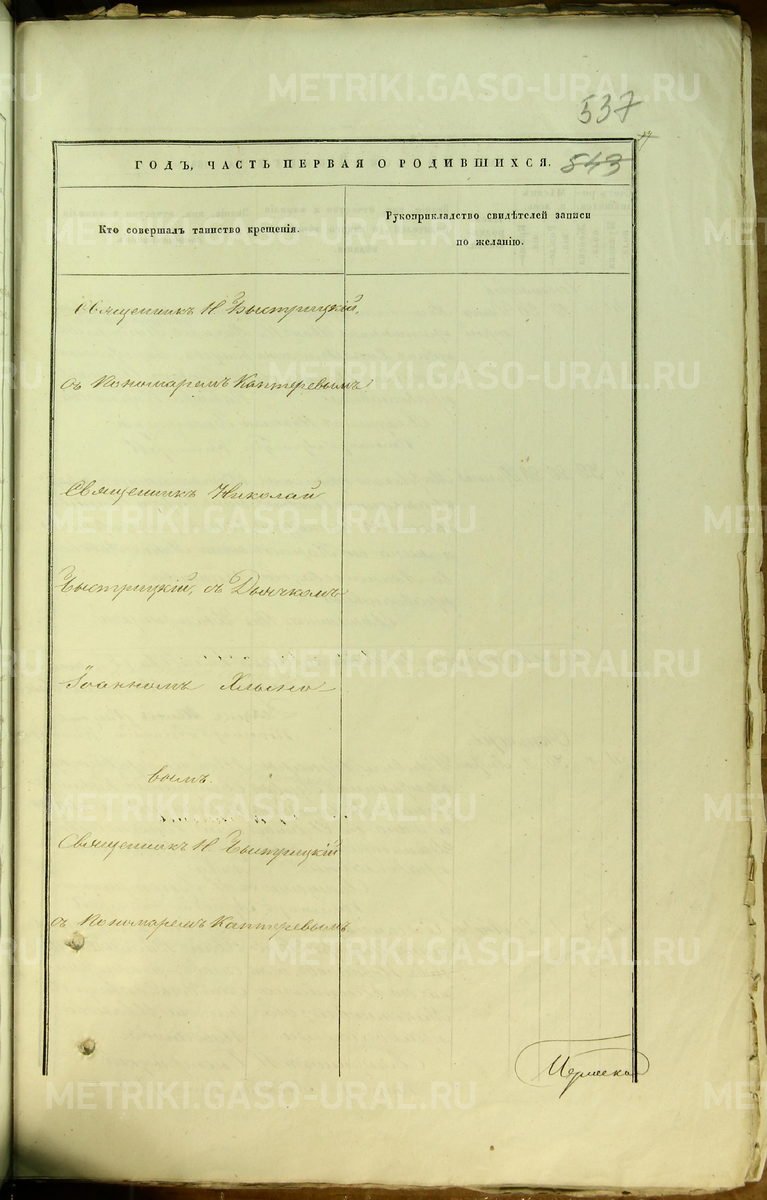 537
ГОДЪ, ЧАСТЬ ПЕРВАЯ О РОДИВШИХСЯ.
543
Кто совершалъ таинство крещенія.
Рукоприкладство свидѣтелей записи
по желанію.
Священникъ Н Быстрицкій,
съ Пономаремъ Каптеревымъ
Священникъ Николай
Быстрицкій, съ Дьячкомъ
Іоанномъ Хлыно
вымъ.
Священникъ Н Быстрицкій
съ Пономаремъ Каптеревымъ
METRIKI.GASO-URAL.RU